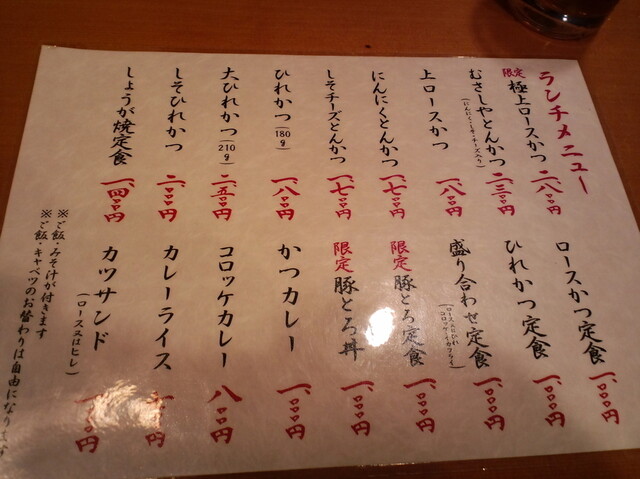 ランチメニュー
限定 極上ロースかつ 二、八〇〇円
むさしやとんかつ 二、三〇〇円
(にんにく・しそ・チーズ入り)
上ロースかつ 一、八〇〇円
にんにくとんかつ 一、七〇〇円
しそチーズとんかつ 一、七〇〇円
ひれかつ(180g) 一、八〇〇円
大ひれかつ(210g) 二、五〇〇円
しそひれかつ 二、〇〇〇円
しょうが焼定食 一、四〇〇円
ロースかつ定食 一、〇〇〇円
ひれかつ定食 一、〇〇〇円
盛り合わせ定食 一、〇〇〇円
限定 豚とろ定食 一、〇〇〇円
限定 豚とろ丼 一、〇〇〇円
かつカレー 一、〇〇〇円
コロッケカレー 八〇〇円
カレーライス 円
カツサンド 円
(ロース又はヒレ)
※ご飯・みそ汁が付きます
※ご飯・キャベツのお替わりは自由になります